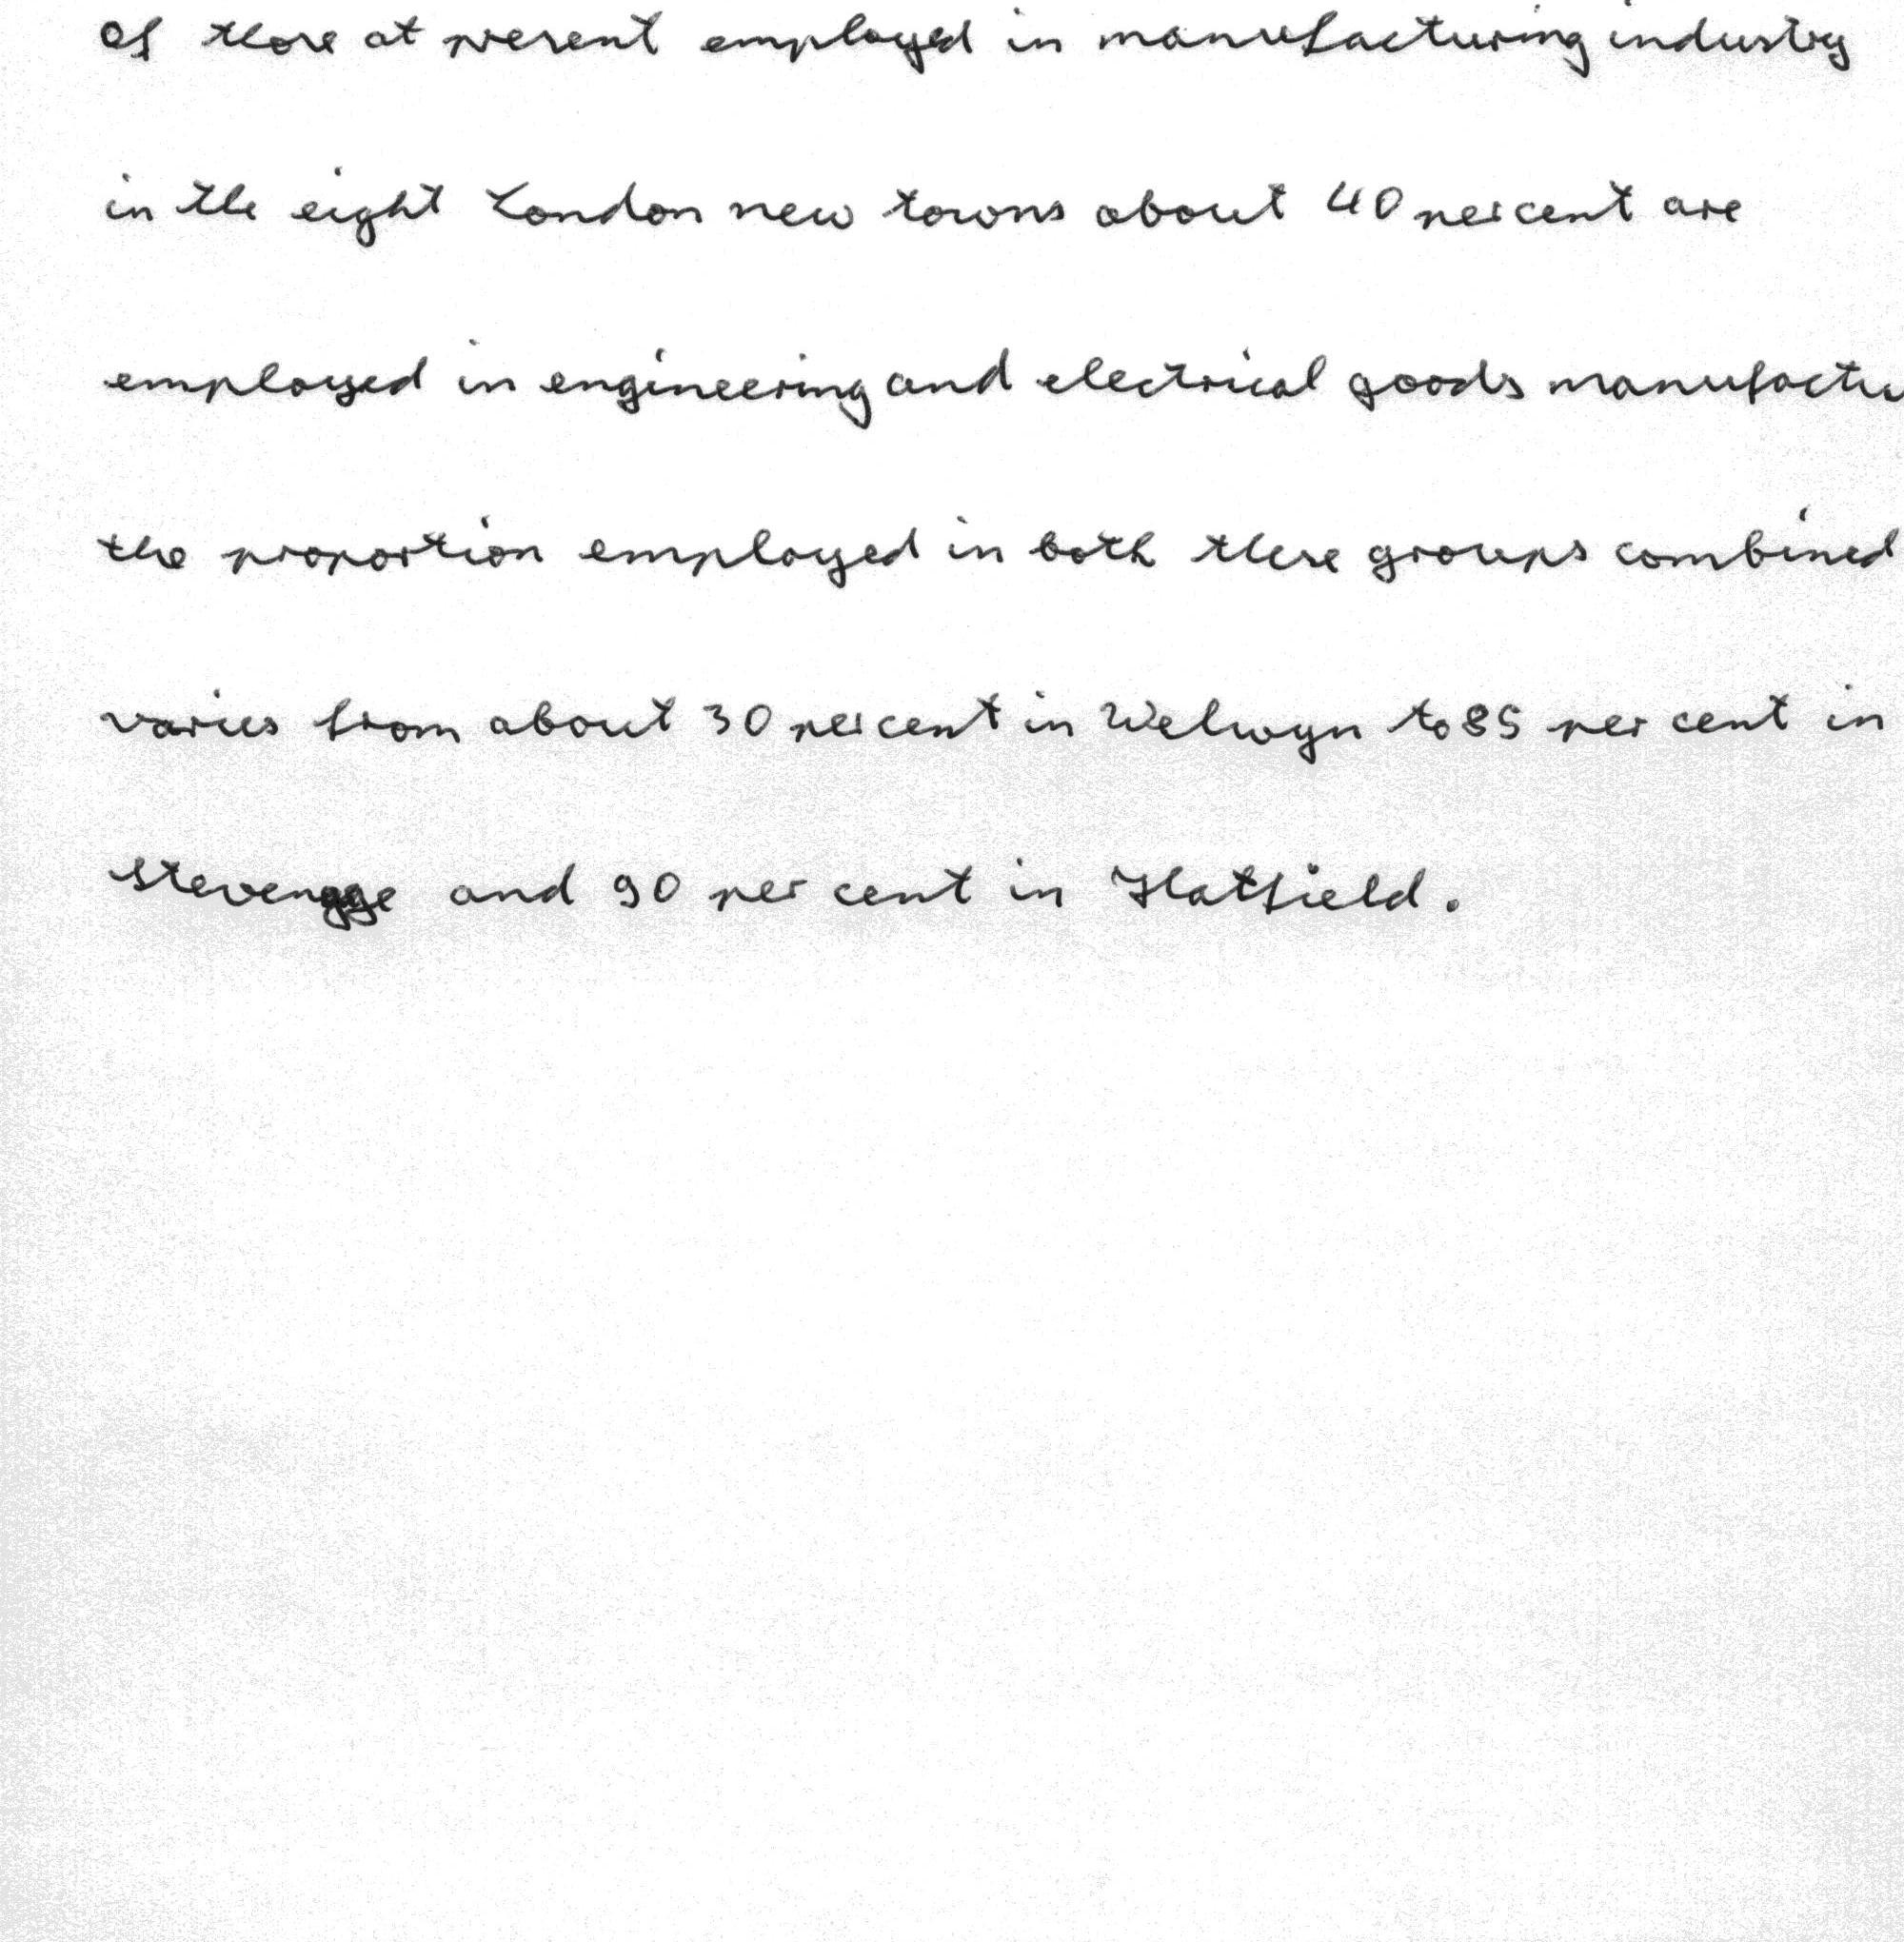 Of those at present employed in manufacturing industry
in the eight London new towns about 40 per cent are
employed in engineering and electrical goods manufactu
the proportion employed in both these groups combined
varies from about 30 per cent in Welwyn to 85 per cent in
Stevenage and 90 per cent in Hatfield.